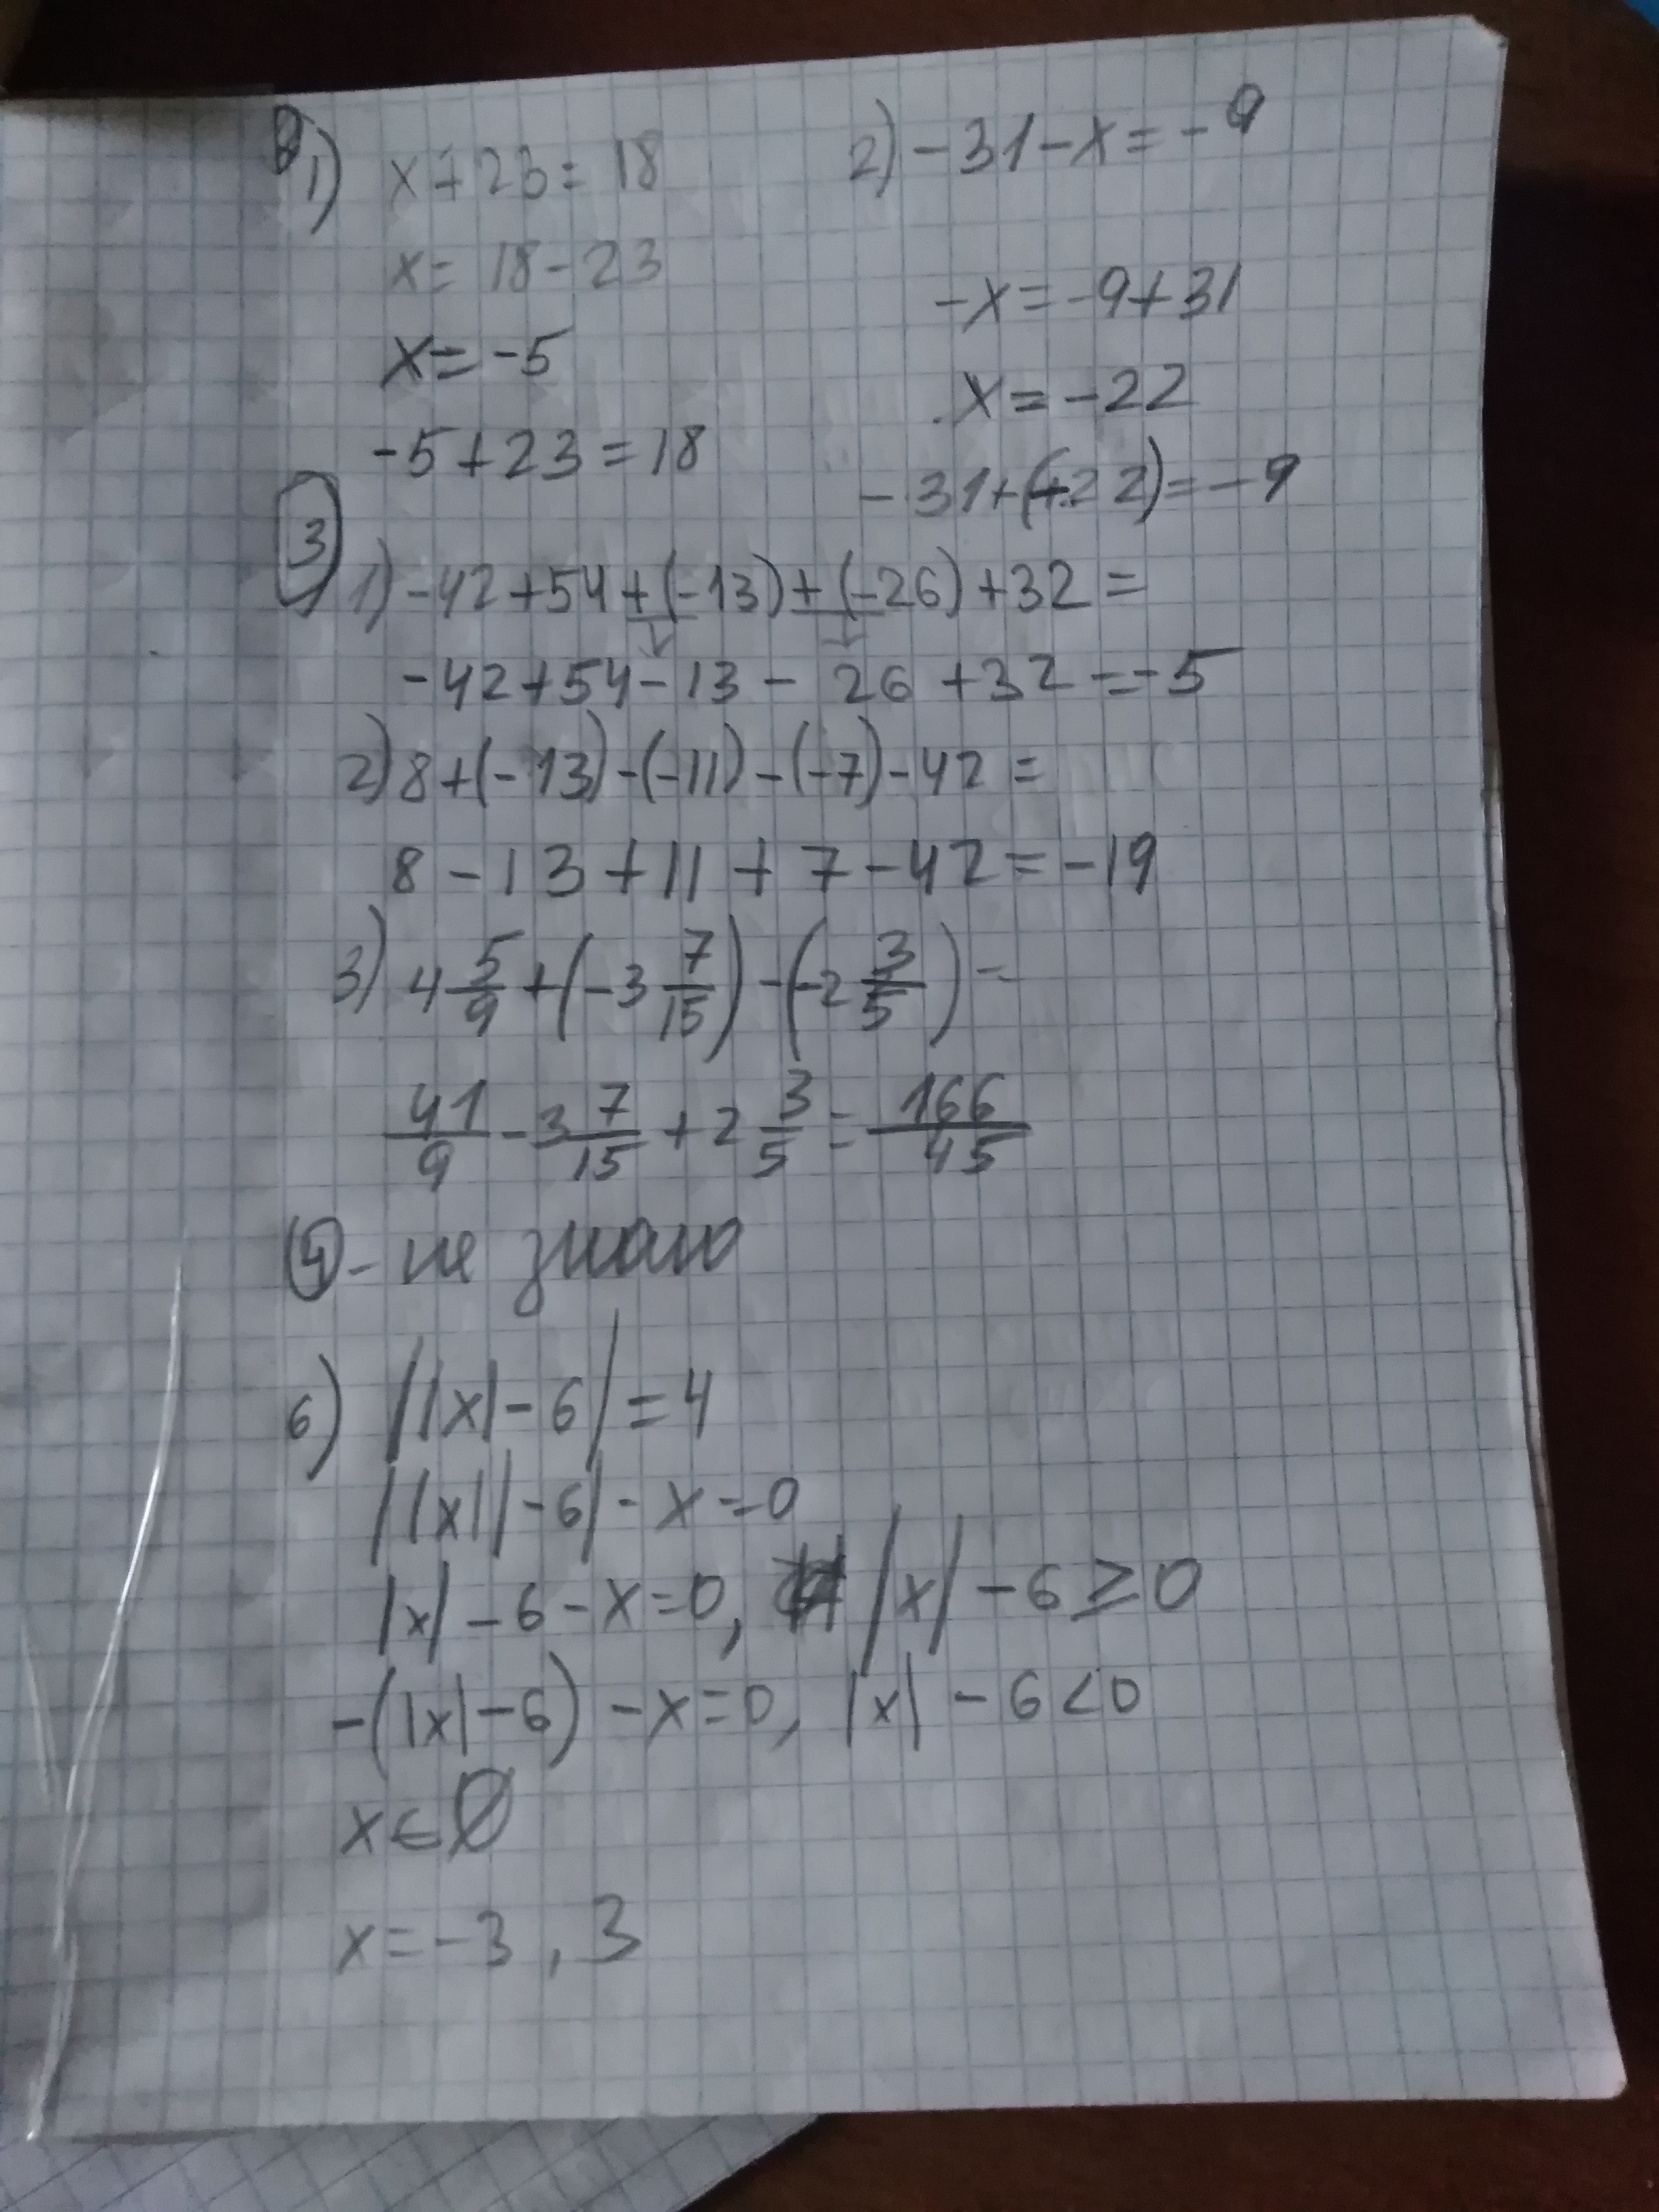 2
1) x+23=18
x=18-23
x=-5
-5+23=18
2) -31-x=-9
-x=-9+31
x=-22
-31+(+22)=-9
3
1) -42+54+(-13)+(-26)+32=
-42+54-13-26+32=-5
2) 8+(-13)-(-11)-(-7)-42=
8-13+11+7-42=-19
3) 4 5/9+(-3 7/15)-(-2 3/5)=
41/9-3 7/15+2 3/5=166/45
- не знаю
6) ||x|-6|=4
||x||-6|-x=0
|x|-6-x=0, |x|-6≥0
-(|x|-6)-x=0, |x|-6<0
x∈∅
x=-3, 3